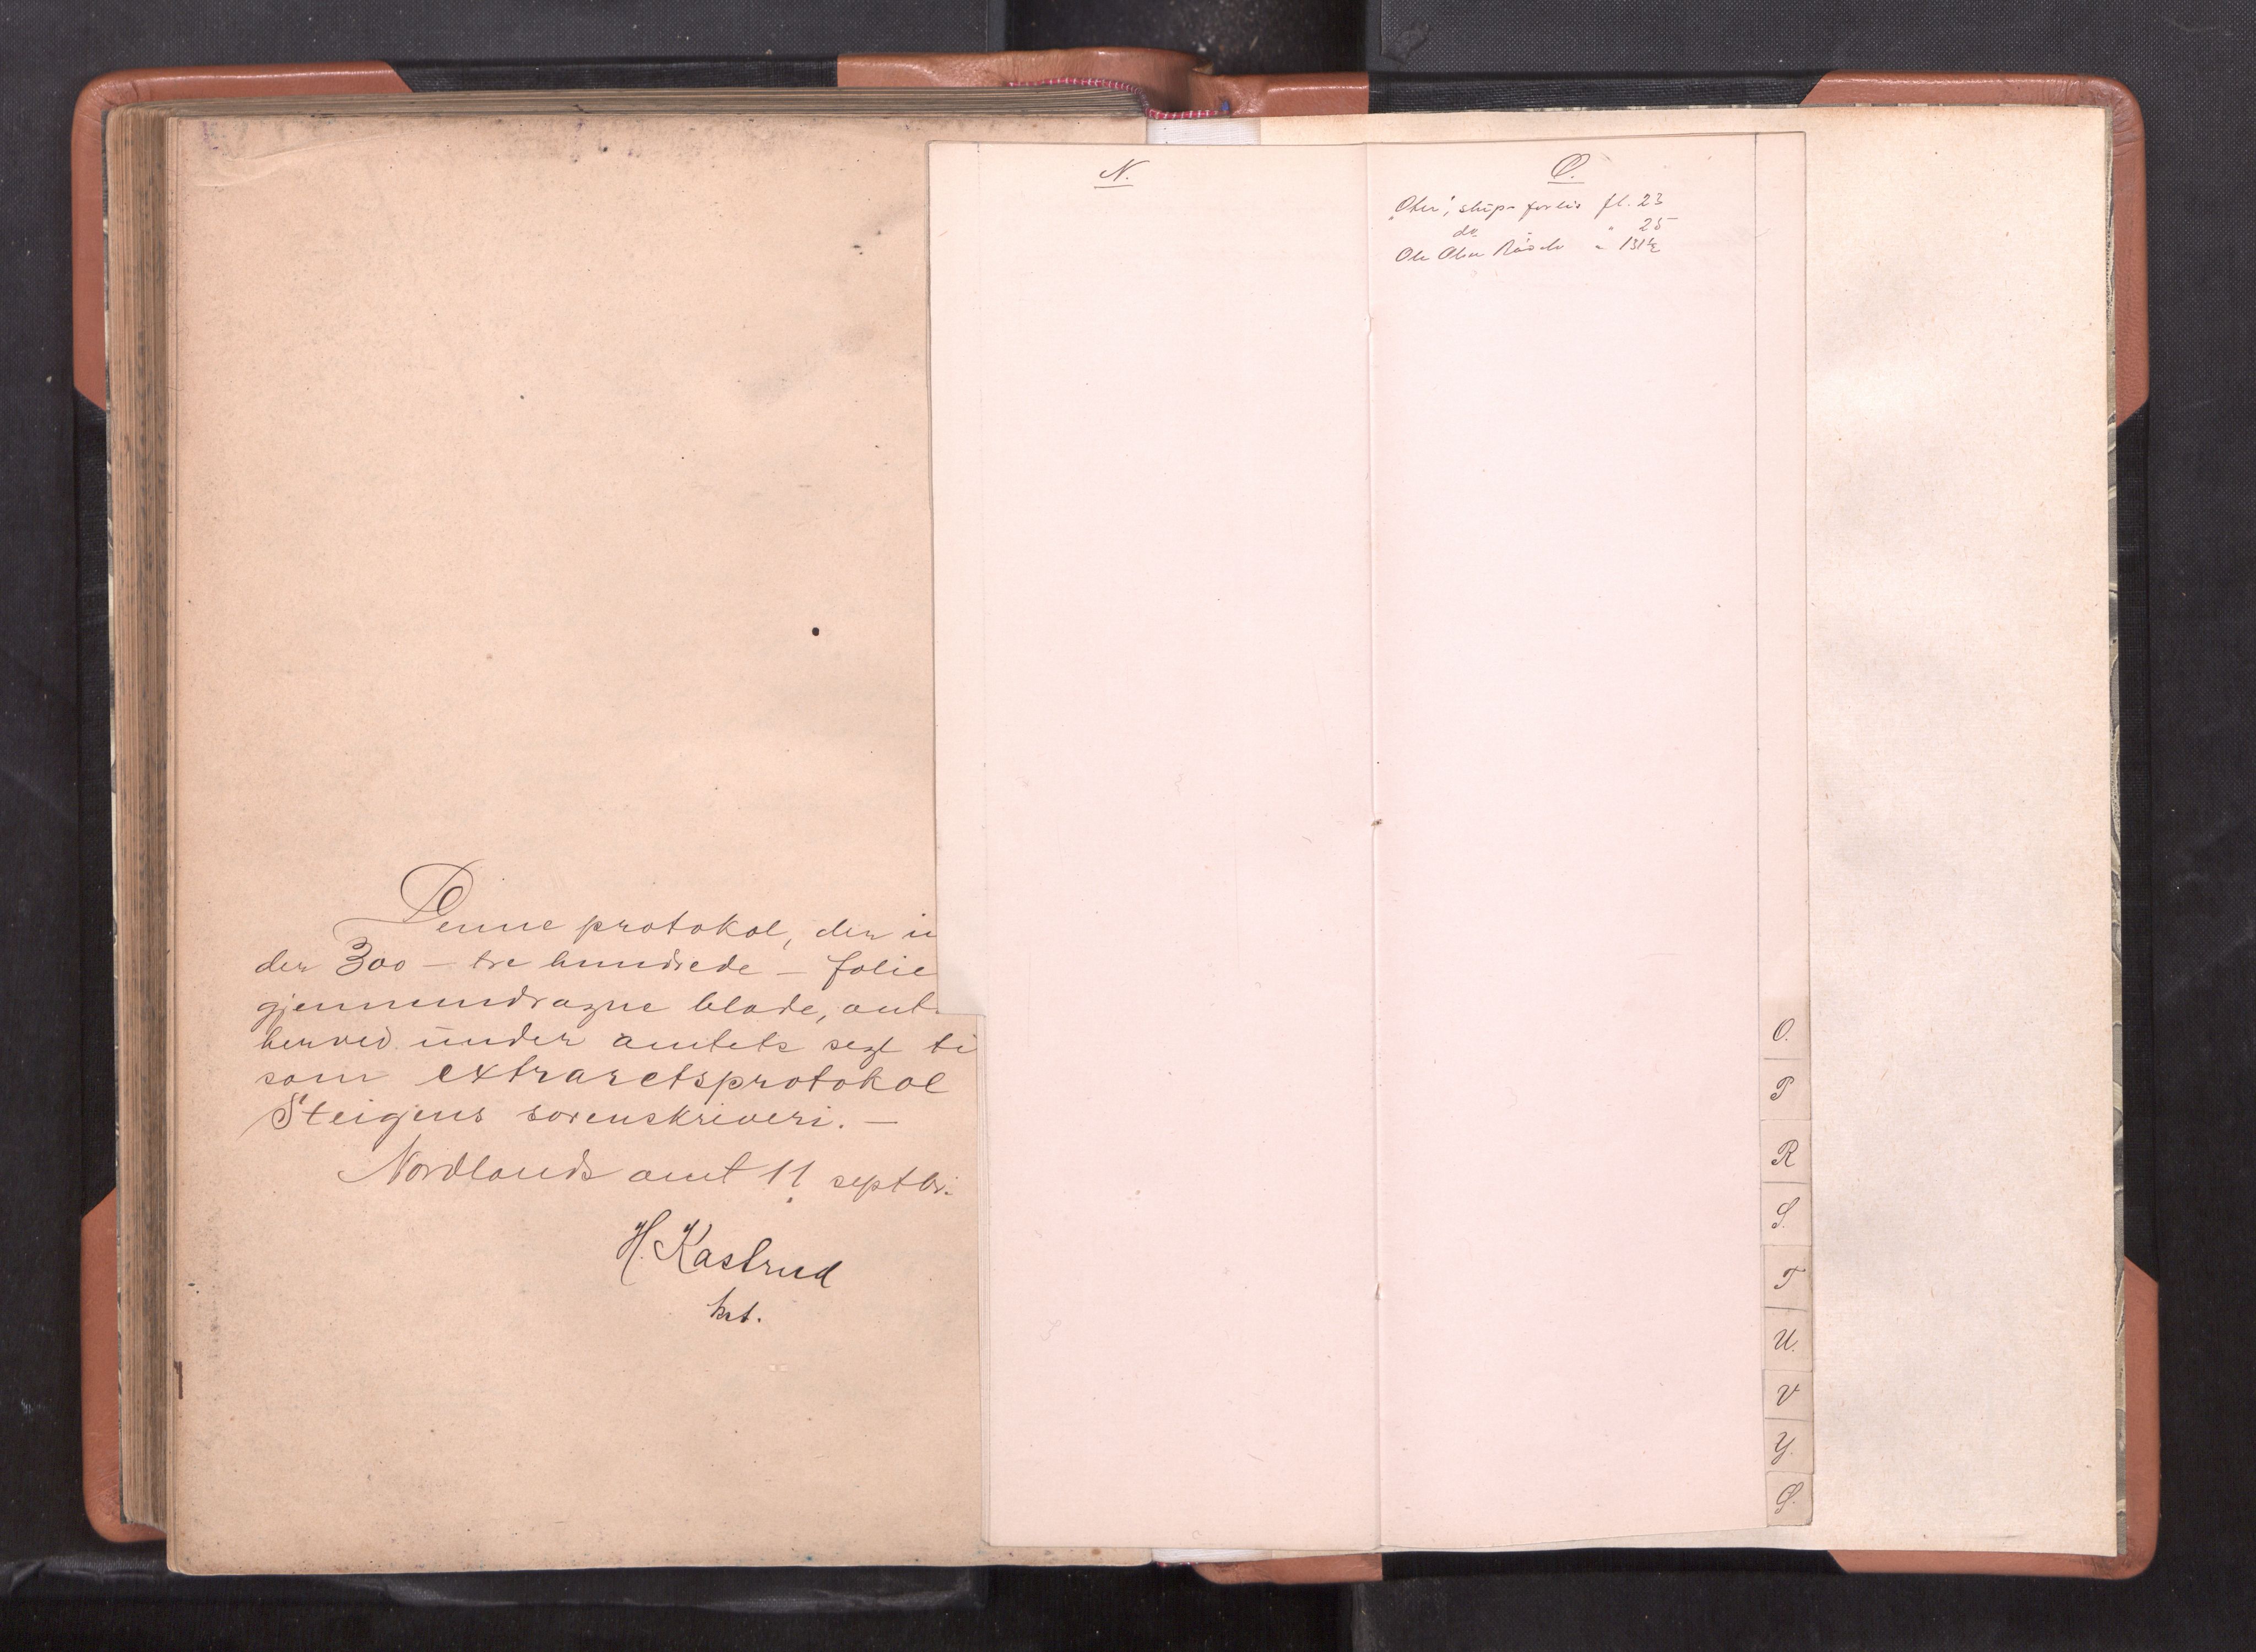 Denne protokol, der in
der 300 – tre hundrede – folie
gjennemdragne blade, aut
herved under amtets segl ti
som extraretsprotokol
Steigens sorenskriveri. –
Nordlands amt 11 septbr.
H. Kastrud
kst.
N.
O.
skips forlis fl. 23
do " 25
Ole Olsen " 131½
O.
P
R
S.
T
U.
V
Y.